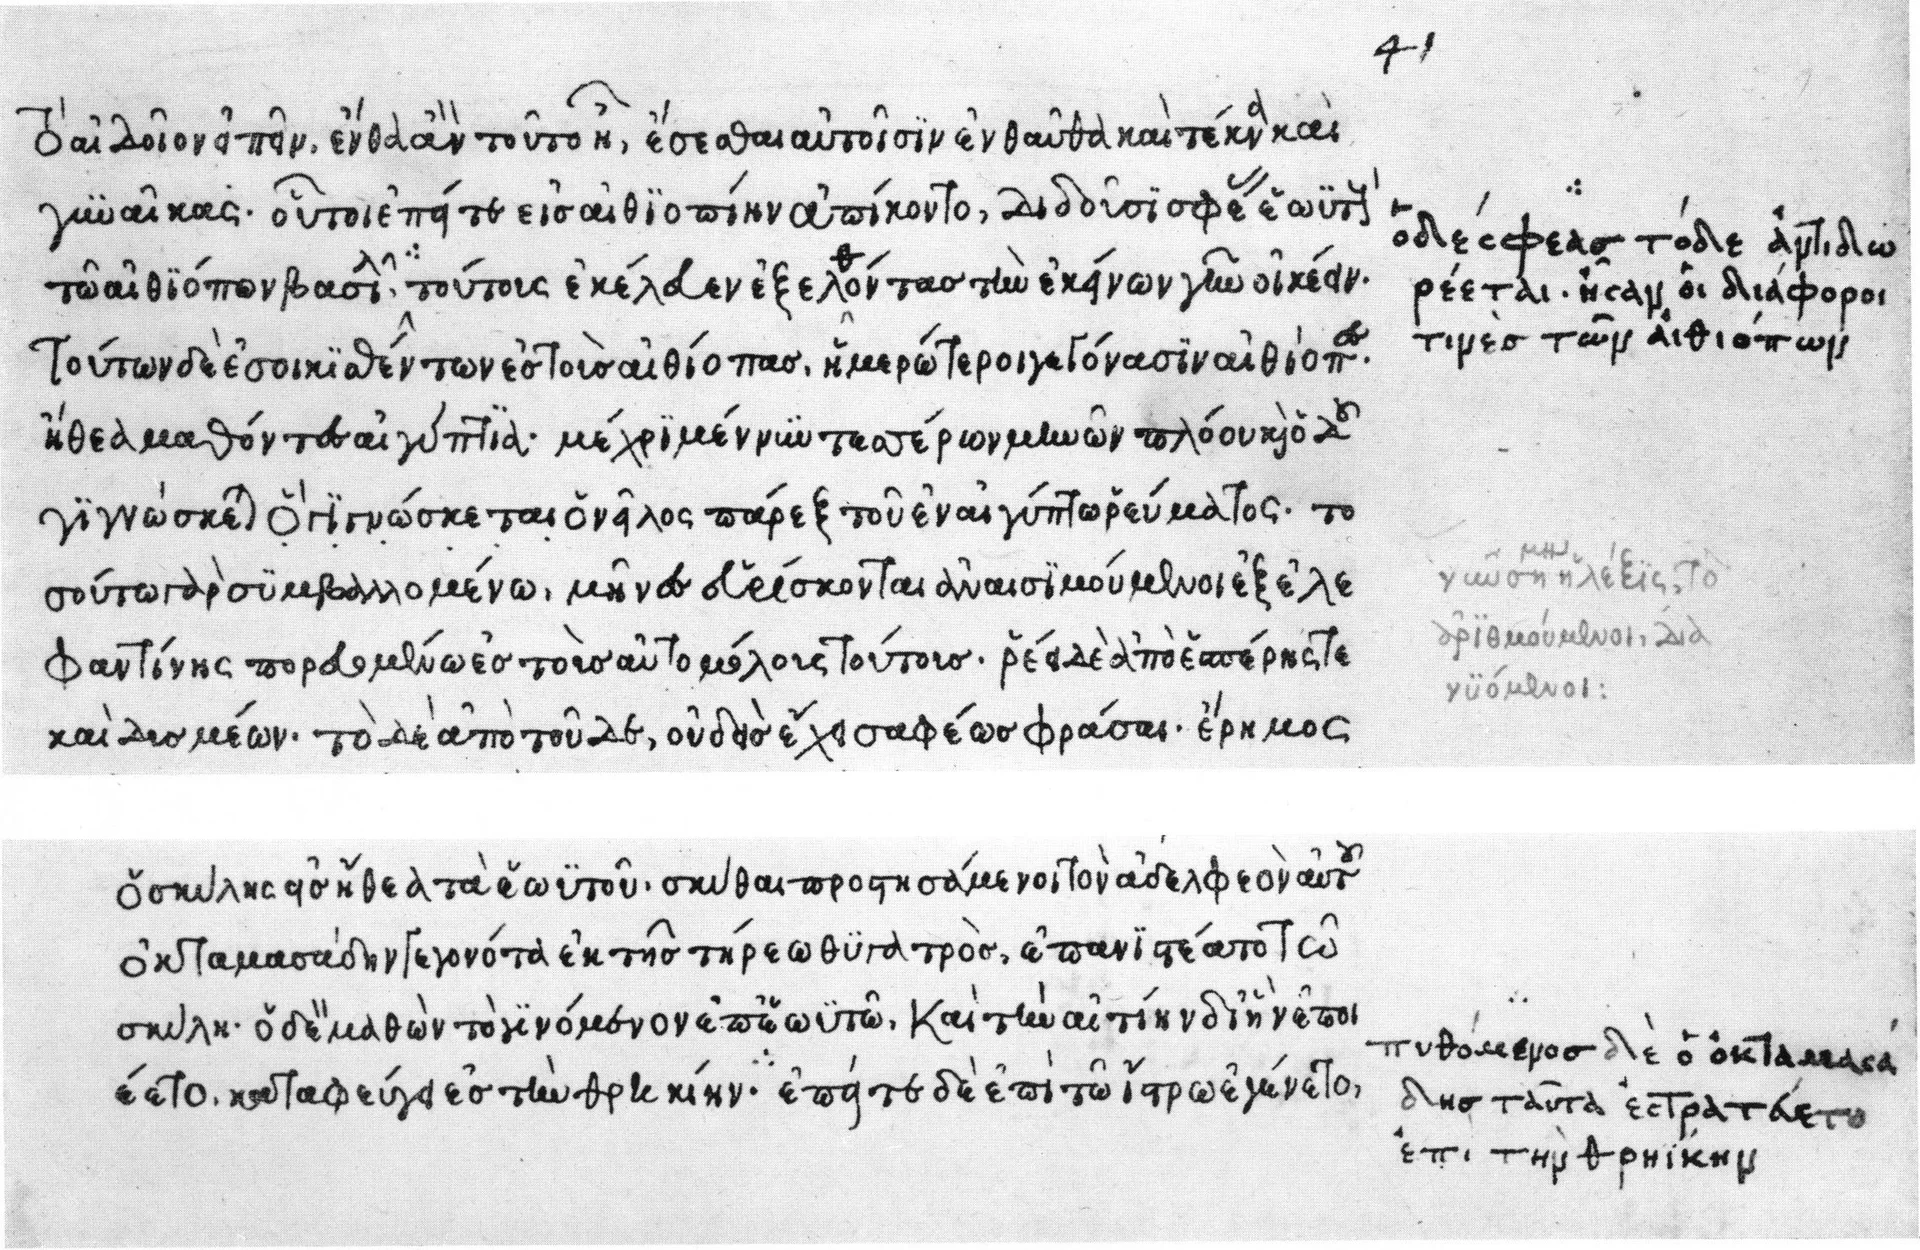 41
τὸ αἰδοῖον εἶπεῖν, ἔνθα ἂν τοῦτο ἦ, ἔσεσθαι αὐτοῖσϊν ἐνθαῦθα καὶ τέκνα καὶ
γυναῖκας. οὗτοι ἐπεί τε εἰσ αἰθϊοπίην ἀπίκοντο, διδοῦσϊ σφέ ἑωϋτοὺς
τῶ αἰθϊόπων βασιλεῖ. τούτοις ἐκέλευεν ἐξελθόντασ τὴν ἐκείνων γῆν οἰκέειν.
Τούτων δὲ ἐσοικϊσθέντων ἐσ τοὺσ αἰθίοπασ, ἡμερώτεροι γεγόνασϊν αἰθίοπες.
ἤθεα μαθόντες αἰγύπτϊα. μέχρϊ μέν νυν τεσσέρων μηνῶν πλόου καὶ ὁδοῦ
γϊγνώσκεται ὁ γϊγνώσκεται ὁ νεῖλος πάρεξ τοῦ ἐν αἰγύπτω ῥεύματος. το
σούτωι γὰρ συμβαλλομένω, μῆνες εὑρίσκονται ἀναισϊμούμενοι ἐξ ἐλε
φαντίνης πορευομένω ἐσ τοὺσ αὐτομόλους τούτουσ. ῥέει δὲ ἀπὸ ἑσπέρης τε
καὶ δυσμέων. τὸ δὲ ἀπὸ τοῦδε, οὐδεὶσ ἔχει σαφέωσ φράσαι. ἔρημος
ὁ δέ σφεασ τόδε ἀντιδω
ρέεται. ἦσαν οἱ διάφοροι
τινὲσ τῶν αἰθιόπων
ἀρϊθμούμενοι, δια
νϋόμενοι:
ὁ σκύλης εἰσ ἤθεα τὰ ἑωϋτοῦ. σκύθαι προστησάμενοι τὸν ἀδελφεὸν αὐτοῦ
ὀκταμασάδην γεγονότα ἐκ τῆσ τήρεω θϋγατρὸσ, ἐπανϊστέατο τῶ
σκύλη. ὁ δὲ μαθὼν τὸ γϊνόμενον ἐπ' ἑωϋτῶ, καὶ τὴν αἰτίην δι' ἣν ἐποι
έετο, καταφεύγει ἐσ τὴν θρηικίην. ἐπεί τε δὲ ἐπὶ τῶ ἴστρω ἐγένετο,
πυθόμενοσ δὲ ὁ ὀκταμασά
δησ ταῦτα ἐστρατάετο
ἐπι τὴν θρηϊκην